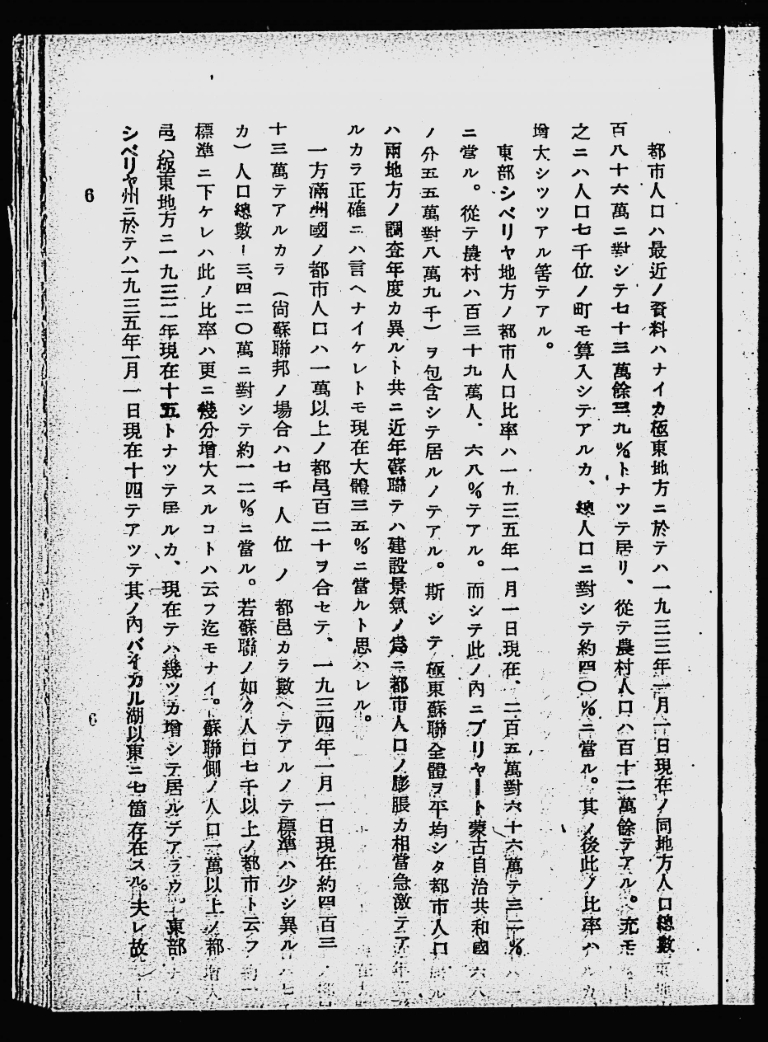 都市人口ハ最近ノ資料ハナイカ極東地方ニ於テハ一九三三年一月一日現在ノ同地方人口總數
百八十六萬ニ對シテ七十三萬餘三九%トナツテ居リ、從テ農村人口ハ百十二萬餘テアル。尤モ
之ニハ人口七千位ノ町モ算入シテアルカ、總人口ニ對シテ約四〇%ニ當ル。其ノ後此ノ比率ハ
增大シツツアル筈テアル。
東部シベリヤ地方ノ都市人口比率ハ一九三五年一月一日現在、二百五萬對六十六萬テ三二%
ニ當ル。從テ農村ハ百三十九萬人、六八%テアル。而シテ此ノ內ニブリヤート蒙古自治共和國
ノ分五五萬對八萬九千)ヲ包含シテ居ルノテアル。斯シテ極東蘇聯全體ヲ平均シタ都市人口
ハ兩地方ノ調査年度カ異ルト共ニ近年蘇聯テハ建設景氣ノ爲ニ都市人口ノ膨脹カ相當急激テア
ルカラ正確ニハ言ヘナイケレトモ現在大體三五%ニ當ルト思ハレル。
一方滿州國ノ都市人口ハ一萬以上ノ都邑百二十ヲ合セテ、一九三四年一月一日現在約四百三
十三萬テアルカラ(尙蘇聯邦ノ場合ハ七千人位ノ都邑カラ數ヘテアルノテ標準ハ少シ異ル
カ)人口總數ー三、四二〇萬ニ對シテ約一二%ニ當ル。若蘇聯ノ如ク人口七千以上ノ都市ト云フ
標準ニ下ケレハ此ノ比率ハ更ニ幾分增大スルコトハ云フ迄モナイ。蘇聯側ノ人口一萬以上ノ都
邑ハ極東地方ニ一九三二年現在十五トナツテ居ルカ、現在テハ幾ツカ增シテ居ルテアラウ。東部
シベリヤ州ニ於テハ一九三五年一月一日現在十四テアツテ其ノ內バイカル湖以東ニ七箇存在スル。夫レ故
6
6